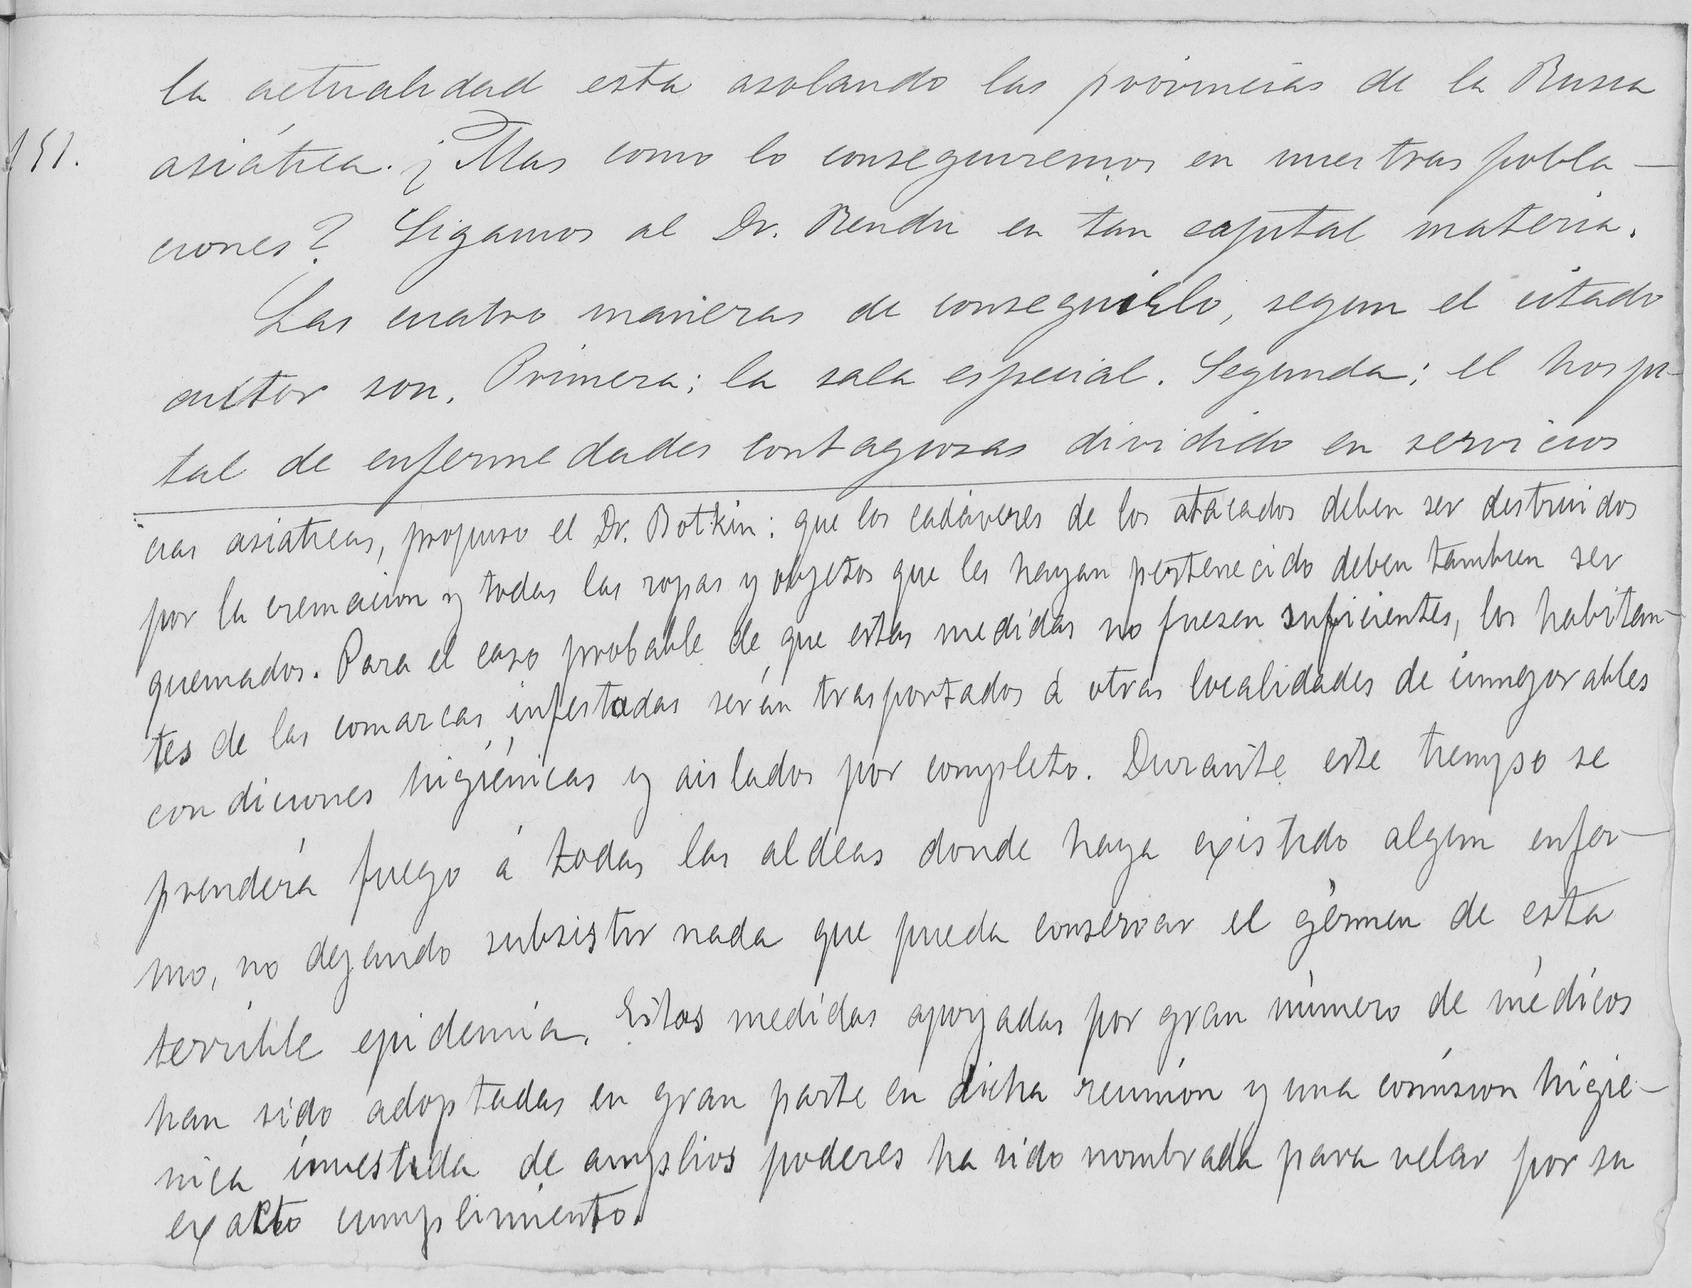 la actualidad esta asolando las provincias de la Rusia
151.
asiática. ¿Mas como lo conseguiremos en nuestras pobla-
ciones? Sigamos al Dr. Rendu en tan capital materia.
Las cuatro maneras de conseguirlo, segun el citado
autor son. Primera: la sala especial. Segunda: el hospi-
tal de enfermedades contagiosas dividido en servicios
cias asiaticas, propuso el Dr. Botkin: que los cadáveres de los atacados deben ser destruidos
por la cremacion y todas las ropas y objetos que les hayan pertenecido deben tambien ser
quemados. Para el caso probable de que estas medidas no fuesen suficientes, los habitan-
tes de las comarcas infestadas serán trasportados á otras localidades de inmejorables
condiciones higiénicas y aislados por completo. Durante este tiempo se
prenderá fuego á todas las aldeas donde haya existido algun enfer-
mo, no dejando subsistir nada que pueda conservar el gérmen de esta
terrible epidemia. Estas medidas apoyadas por gran número de médicos
han sido adoptadas en gran parte en dicha reunion y una comision higie-
nica investida de amplios poderes ha sido nombrada para velar por su
exacto cumplimiento.